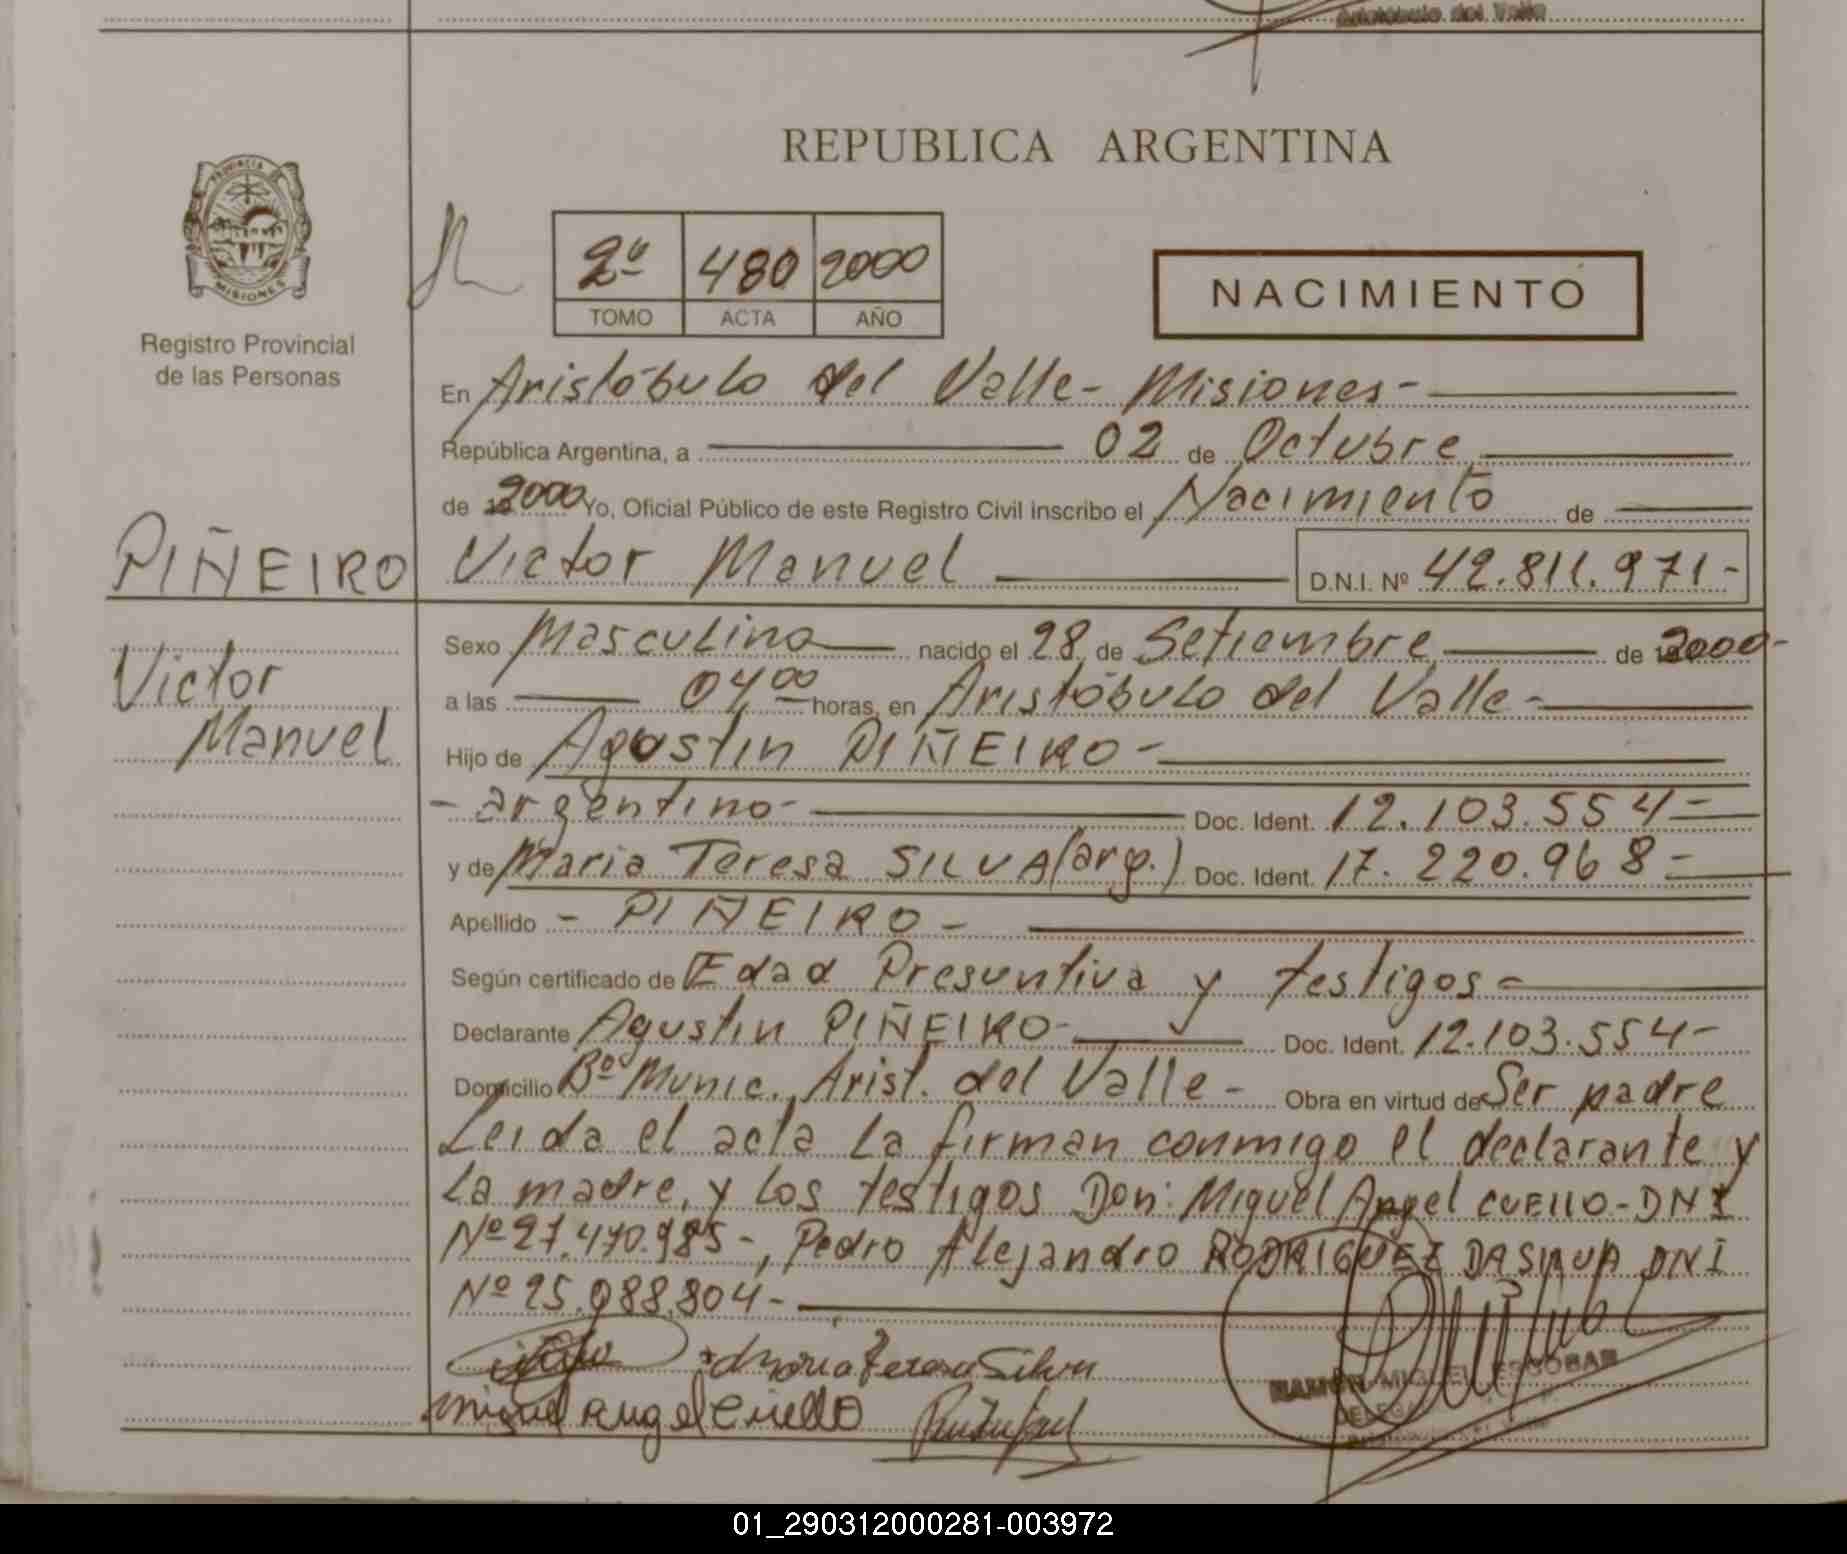 Aristóbulo del Valle
REPUBLICA ARGENTINA
PROVINCIA DE
MISIONES
Registro Provincial
de las Personas
2º 480 2000
TOMO ACTA AÑO
NACIMIENTO
En Aristóbulo del Valle - Misiones -
República Argentina, a 02 de Octubre
de 2000 Yo, Oficial Público de este Registro Civil inscribo el Nacimiento de
PIÑEIRO Victor Manuel D.N.I. Nº 42.811.971-
Victor
Manuel
Sexo Masculino nacido el 28 de Setiembre de 2000-
a las 04 00 horas, en Aristóbulo del Valle -
Hijo de Agustin PIÑEIRO -
- argentino - Doc. Ident. 12.103.554 -
y de Maria Teresa SILVA (arg.) Doc. Ident. 17.220.968 -
Apellido - PIÑEIRO -
Según certificado de Edad Presuntiva y testigos -
Declarante Agustin PIÑEIRO - Doc. Ident. 12.103.554 -
Domicilio Bº Munic. Arist. del Valle - Obra en virtud de Ser padre
Leida el acta la firman conmigo el declarante y
la madre, y los testigos Don: Miguel Angel CUELLO - DNI
Nº 27.470.985 -, Pedro Alejandro RODRIGUEZ DASILVA DNI
Nº 25.088.804 -
Maria Teresa Silva
Miguel angel Cuello
RAMON MIGUEL ESCOBAR
01_290312000281-003972